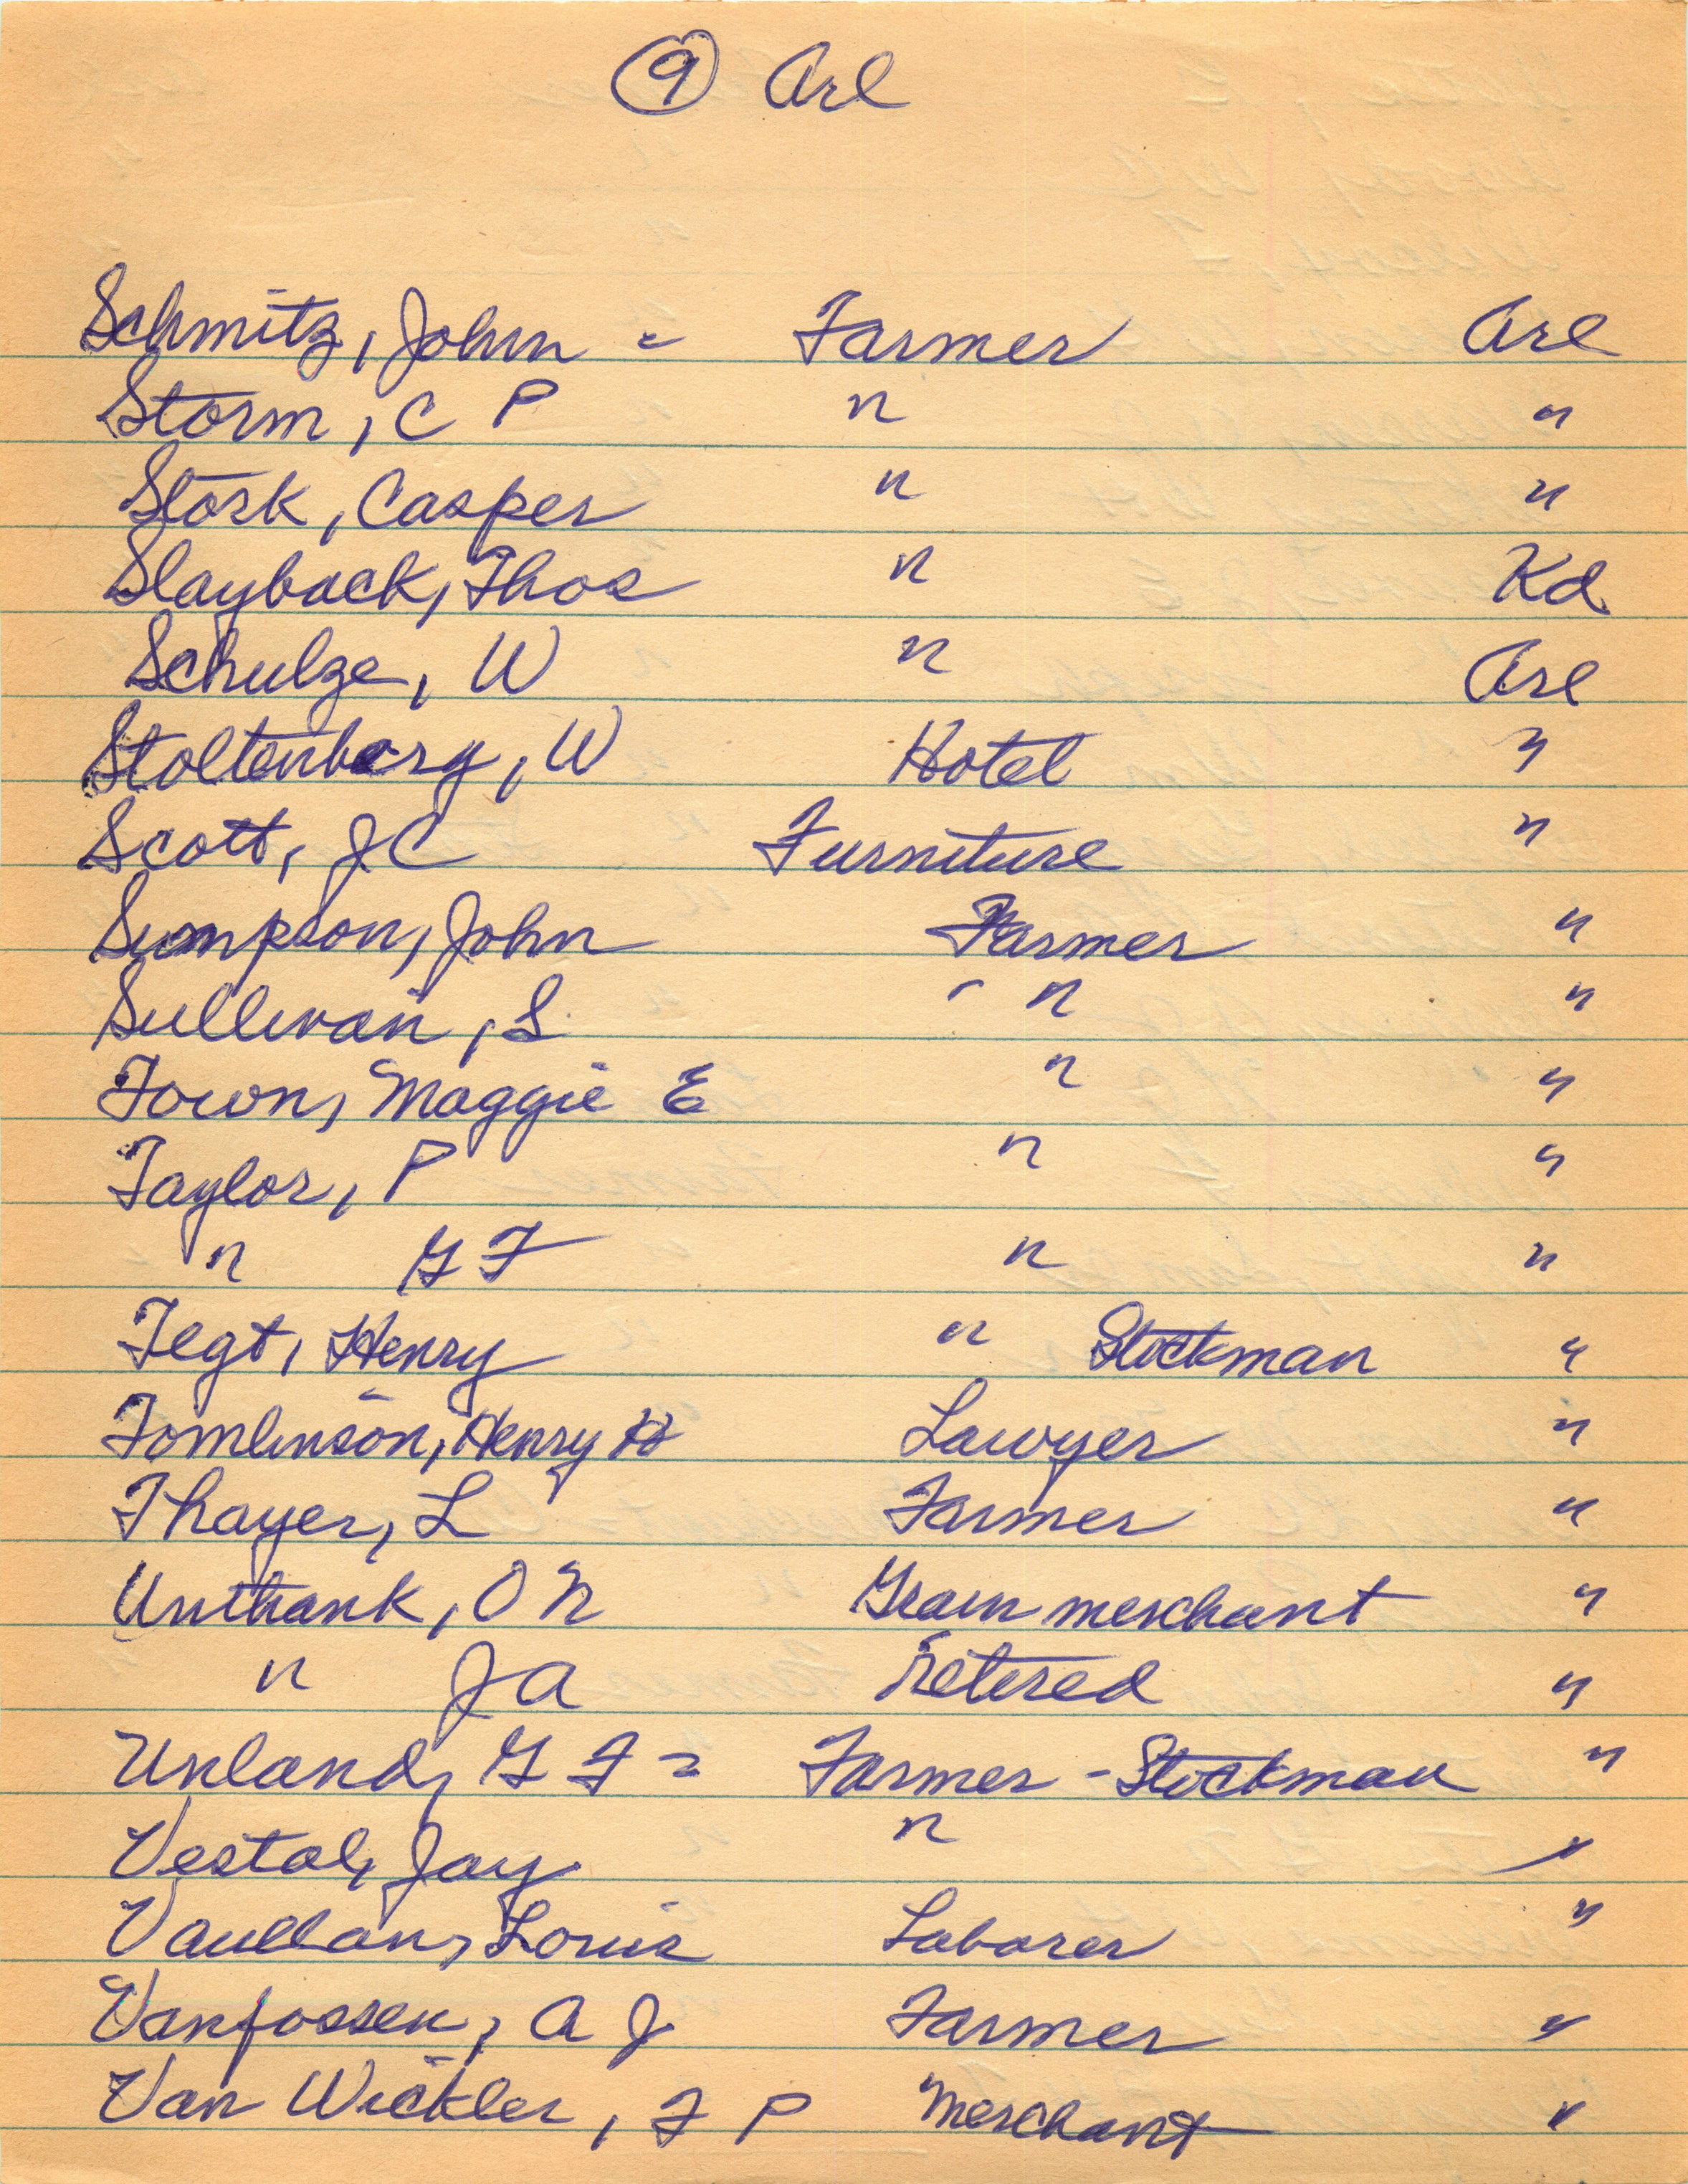 ⑨ Arl
Schmitz, John - Farmer Arl
Storm, C P " "
Stork, Casper " "
Slayback, Thos " Kd
Schulze, W " Arl
Stoltenberg, W Hotel "
Scott, J C Furniture "
Simpson, John Farmer "
Sullivan, S - " "
Town, Maggie E " "
Taylor, P " "
" G F " "
Tegt, Henry " Stockman "
Tomlinson, Henry H Lawyer "
Thayer, L Farmer "
Unthank, O N Grain merchant "
" J A retired "
Unland, G F = Farmer - Stockman "
Vestal, Jay " "
Louis Laborer "
Vanfossen, A J Farmer "
Van Wickler, F P Merchant "